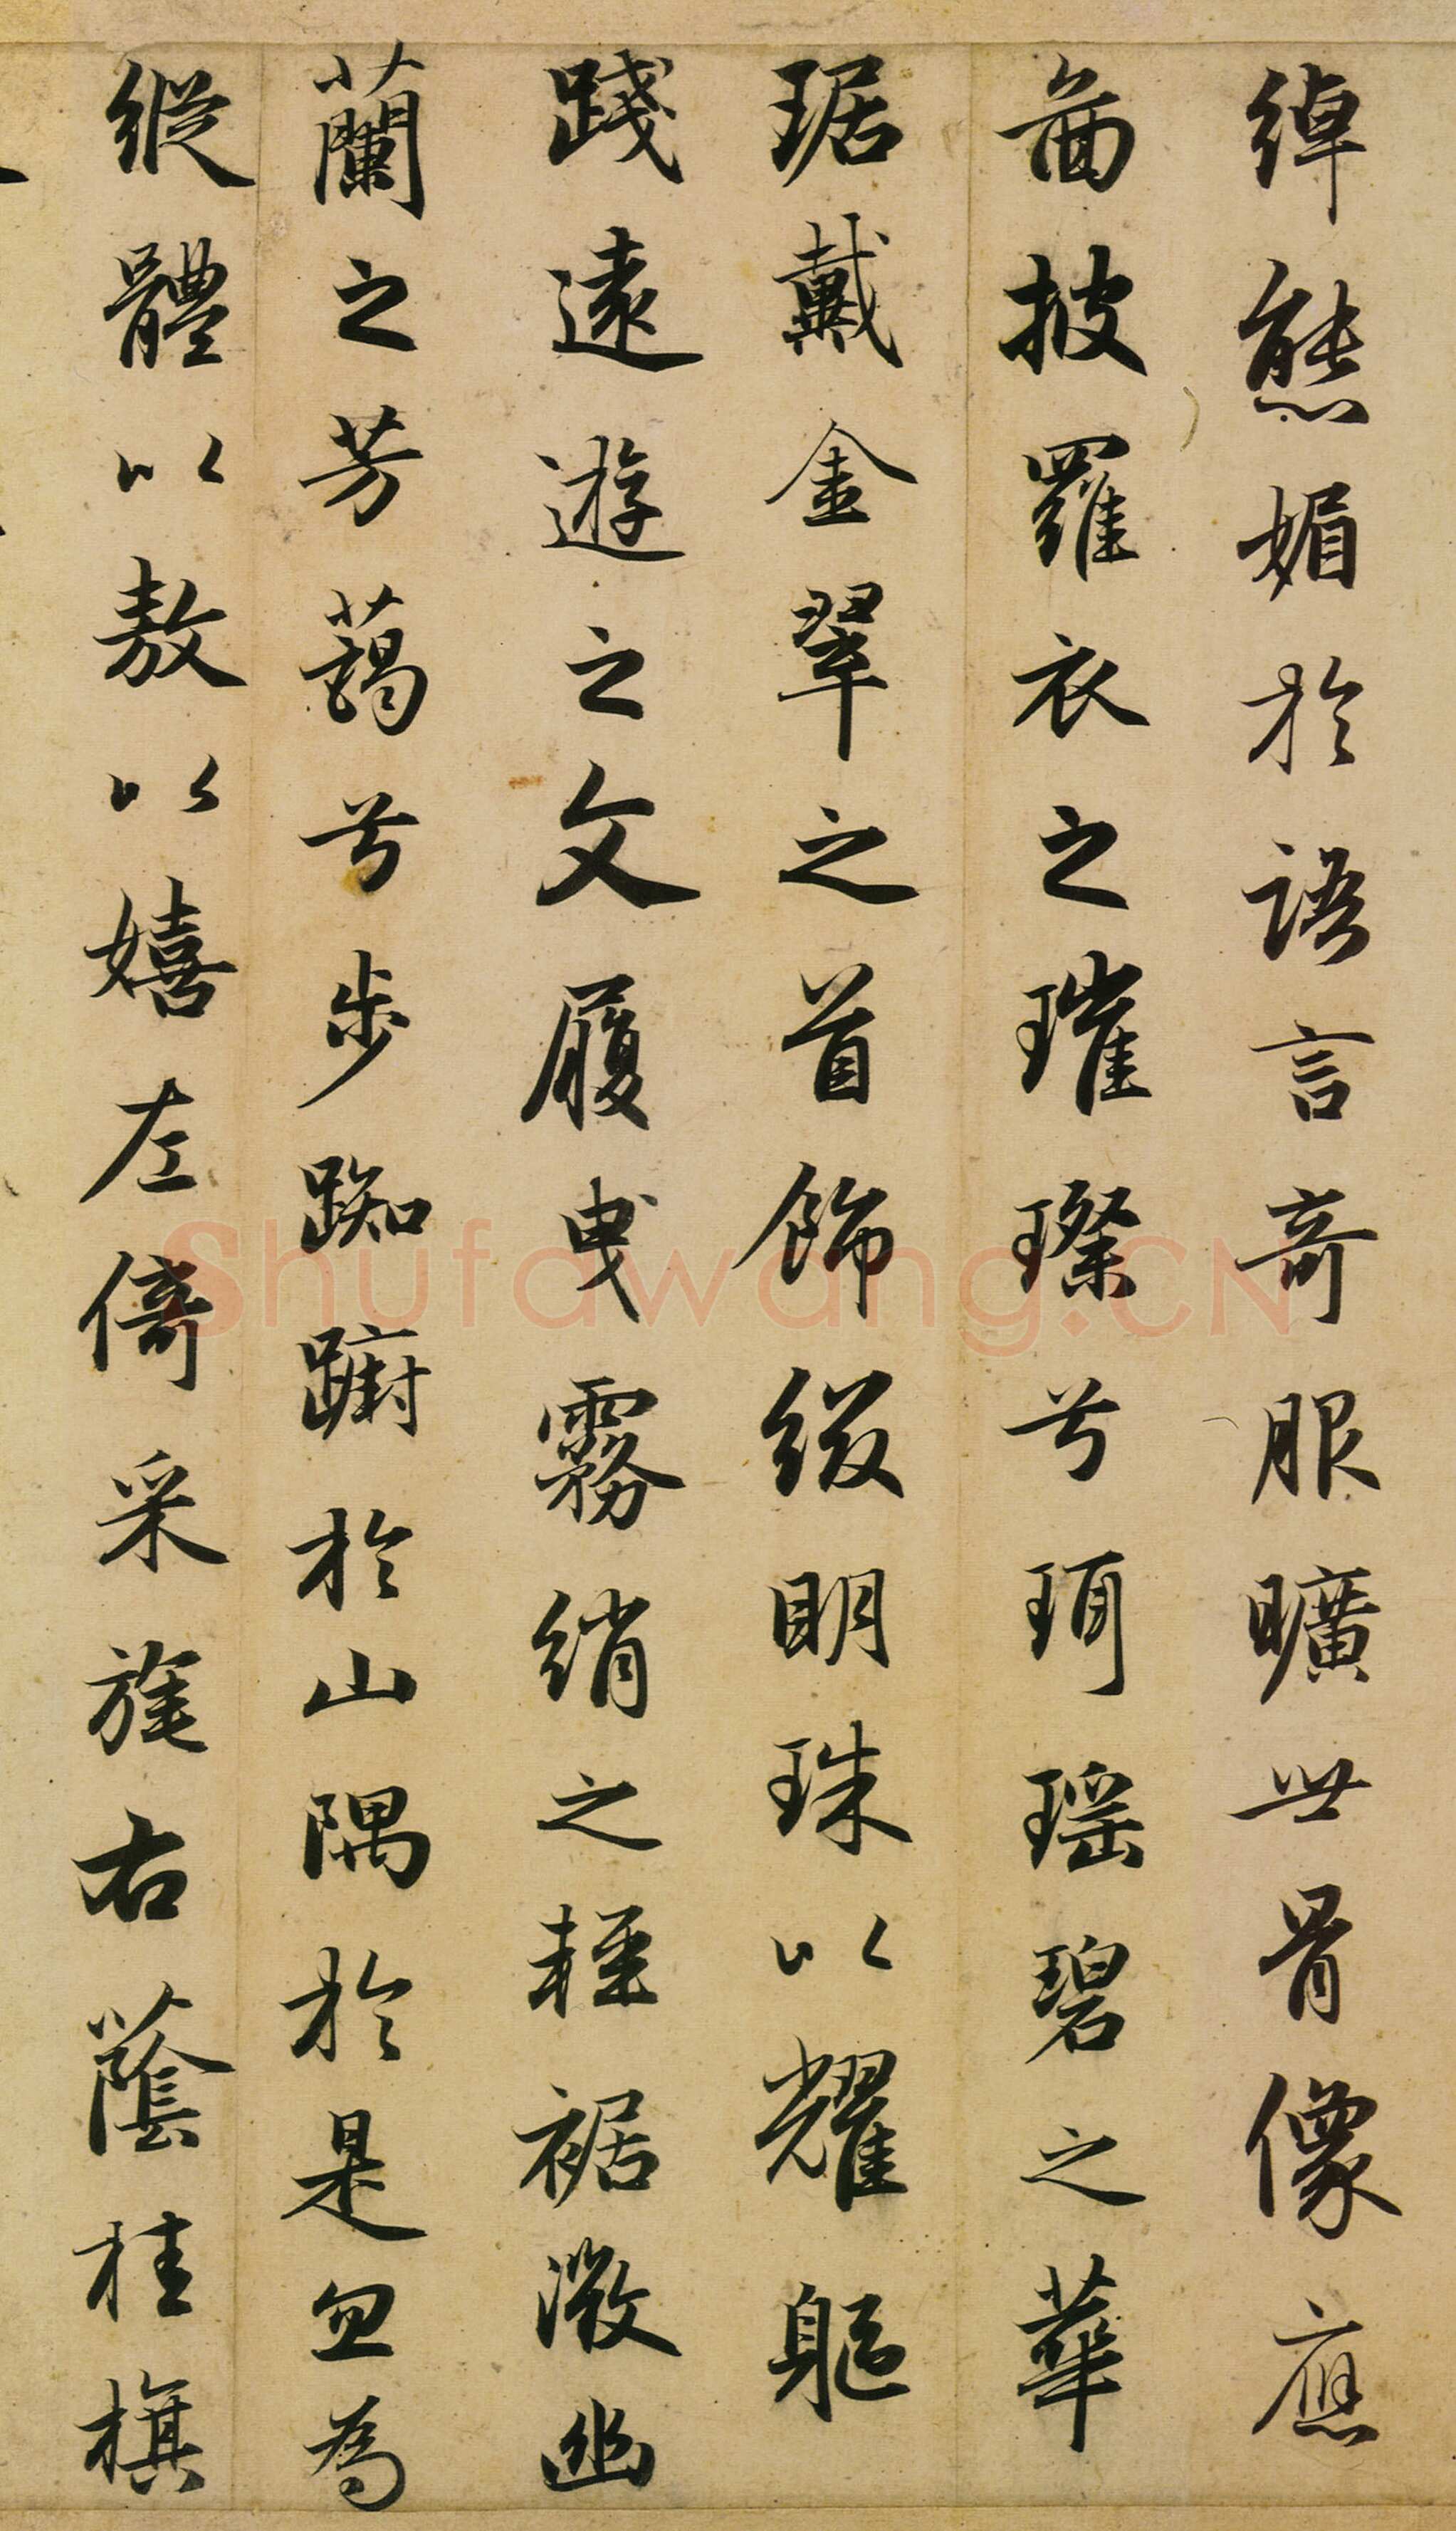 綽態媚於語言奇服曠世骨像應
啚披羅衣之璀璨兮珥瑶碧之華
琚戴金翠之首飾綴明珠以耀軀
踐遠遊之文履曳霧綃之輕裾微幽
蘭之芳藹兮步踟躕於山隅於是忽焉
縱體以敖以嬉左倚采旄右蔭桂旗
Shufawang.CN